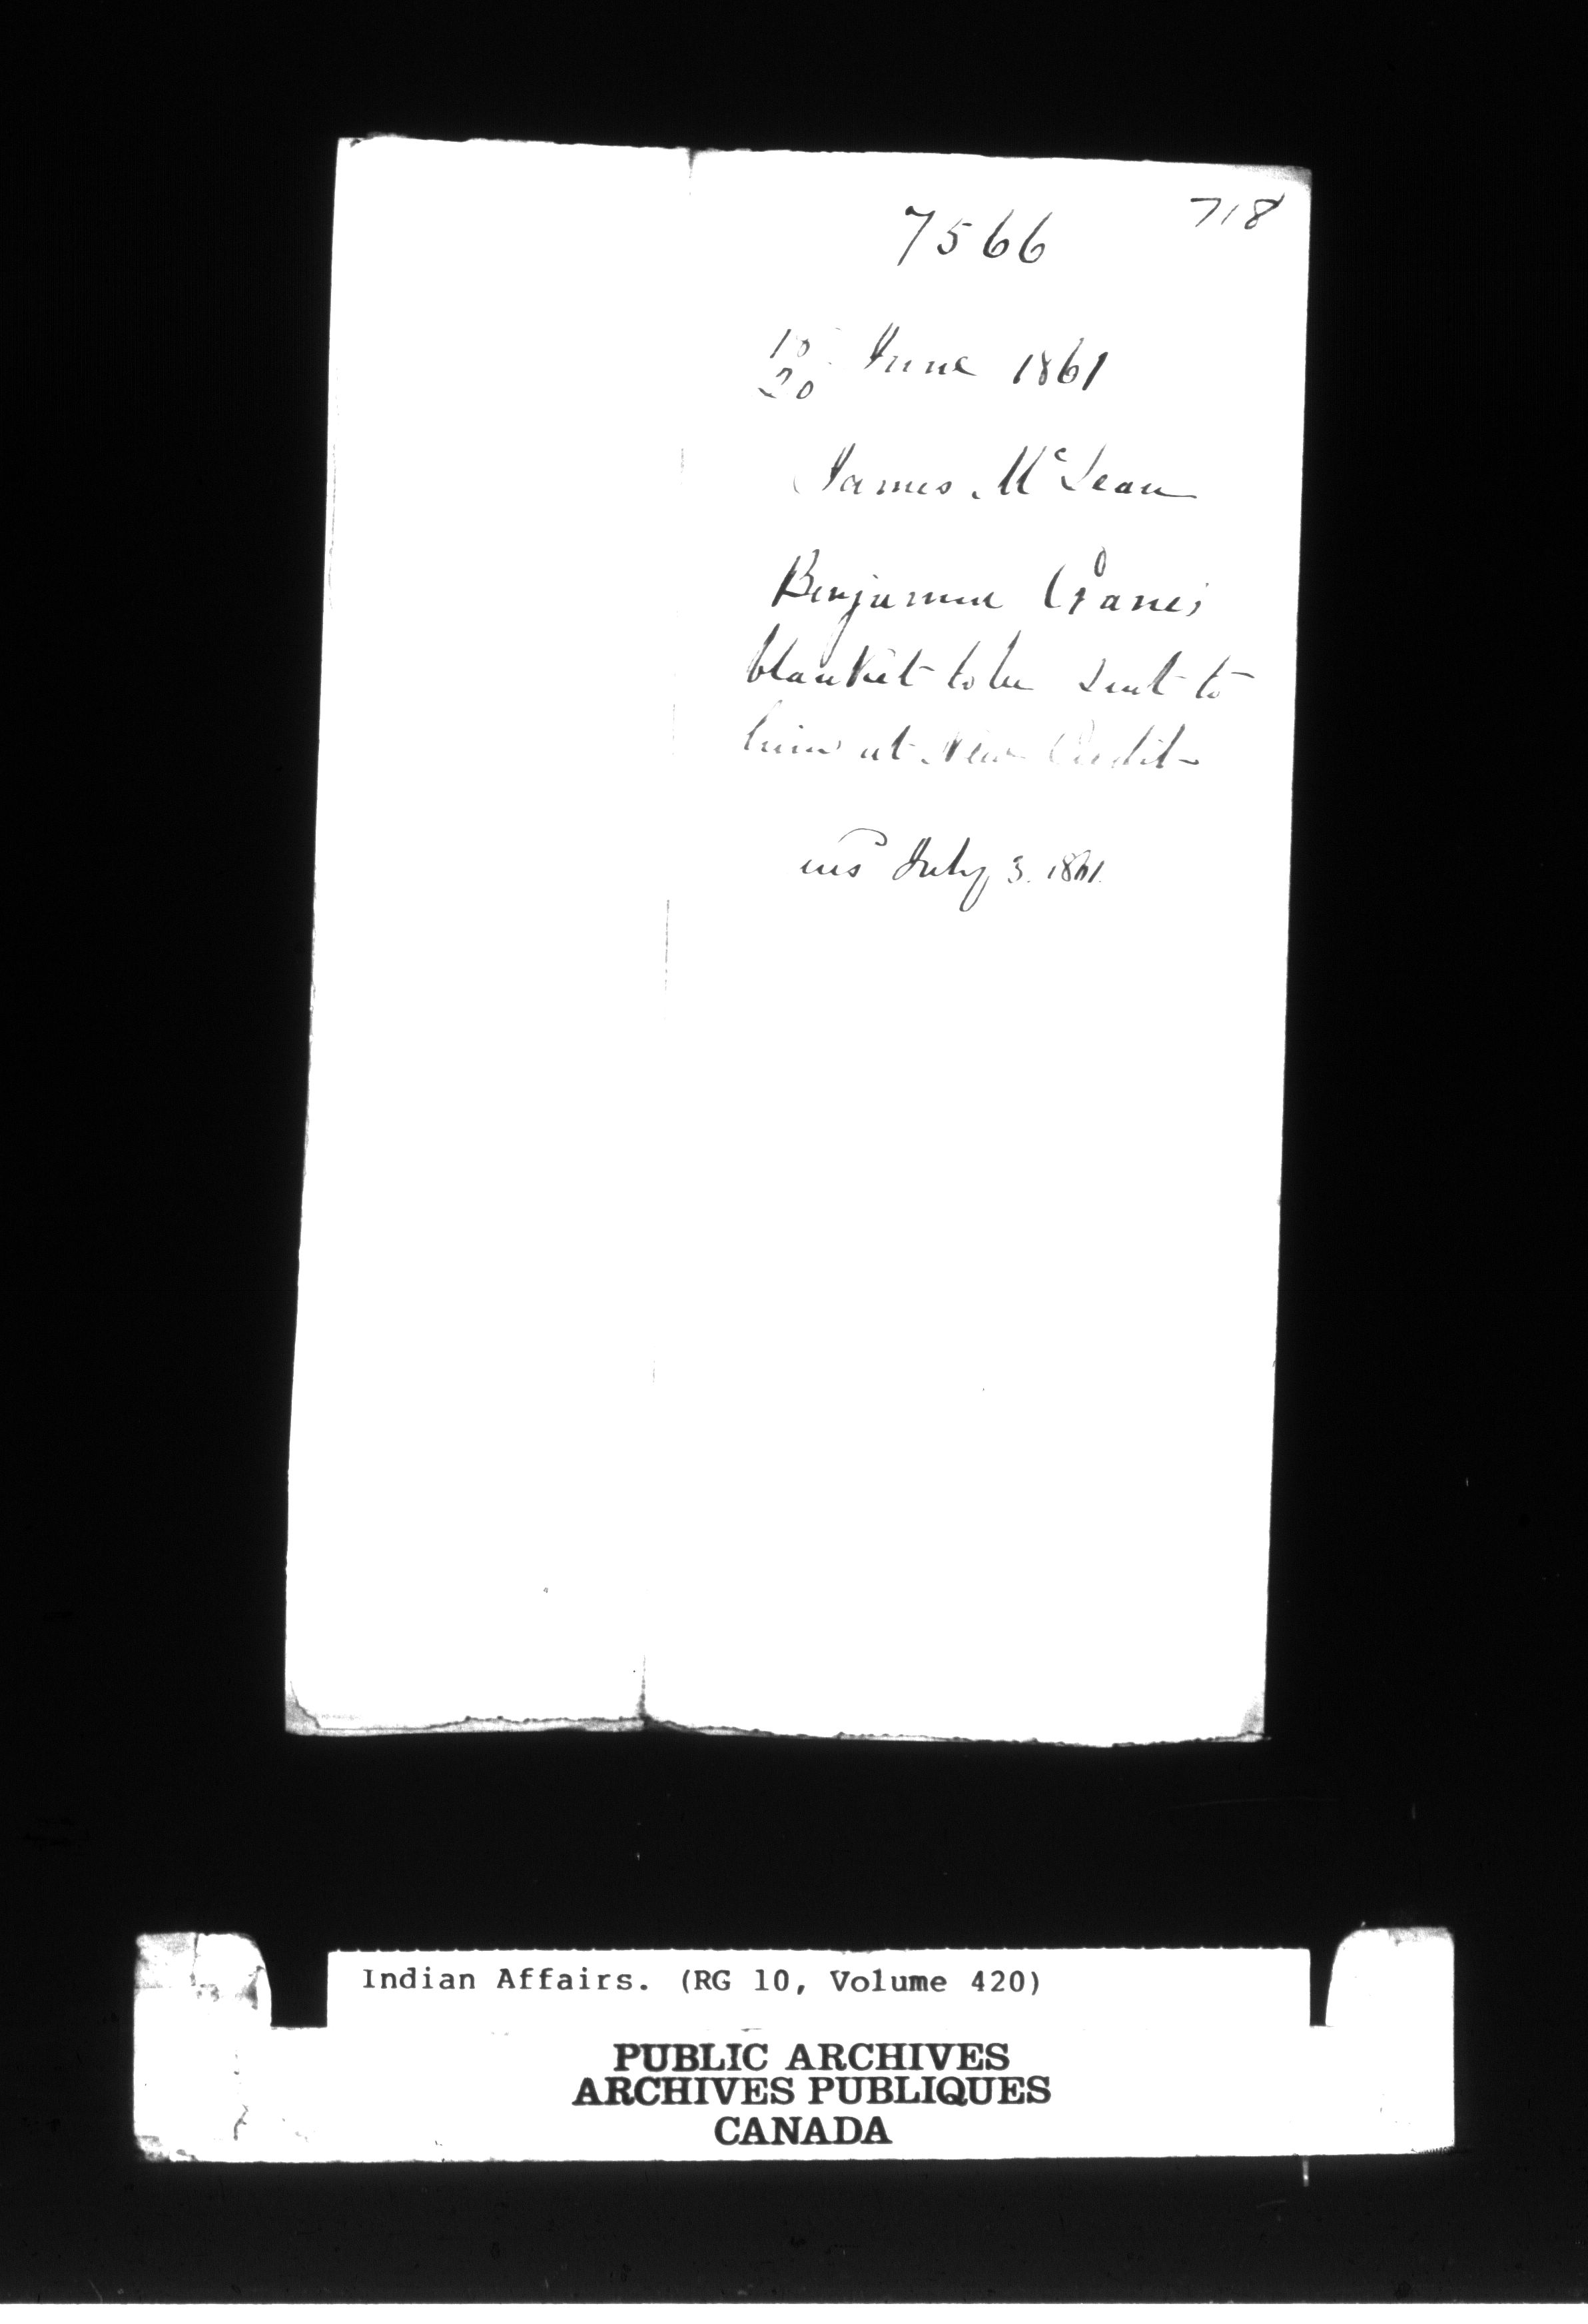 718
7566
18
20 June 1861
James McLean
Benjamin Crane's
blanket to be sent to
him at New Credit
July 3. 1861.
Indian Affairs. (RG 10, Volume 420)
PUBLIC ARCHIVES
ARCHIVES PUBLIQUES
CANADA